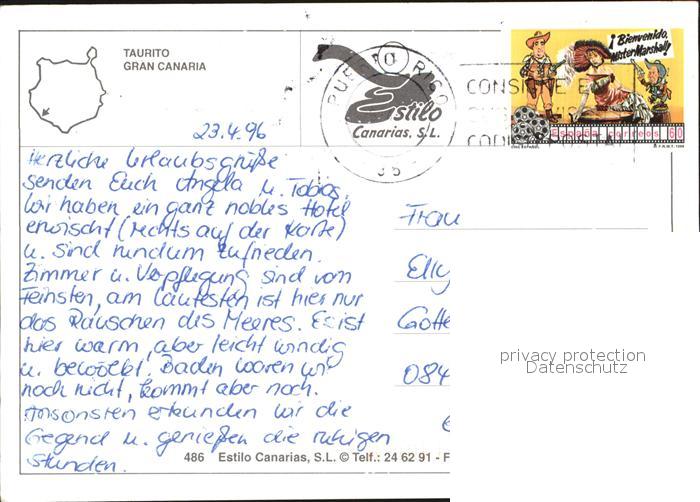 TAURITO
GRAN CANARIA
Estilo
Canarias, S.L.
PUERTO RICO
35
CONSIGNE EL
¡Bienvenido,
Mister Marshall!
España correos 60
23.4.96
Herzliche Urlaubsgrüße
senden Euch Angela u. Tobias.
Wir haben ein ganz nobles Hotel
erwischt (rechts auf der Karte)
u. sind rundum zufrieden.
Zimmer u. Verpflegung sind vom
Feinsten, am lautesten ist hier nur
das Rauschen des Meeres. Es ist
hier warm, aber leicht windig
u. bewölkt. Baden waren wir
noch nicht, kommt aber noch.
Ansonsten erkunden wir die
Gegend u. genießen die ruhigen
Stunden.
Frau
Elly
Gotte
084
privacy protection
Datenschutz
486 Estilo Canarias, S.L. © Telf.: 24 62 91 - F